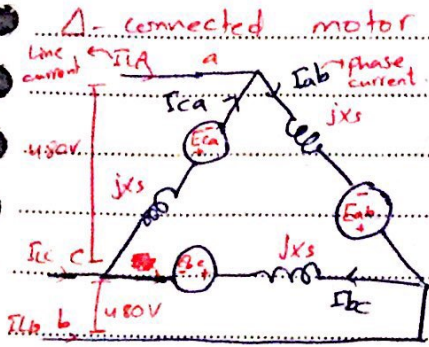 Δ- connected motor
Line current ILA a Iab phase current.
Ica jxs
480V Eca
jxs Eab
ILc c Ebc jxs
480V Ibc
ILb b